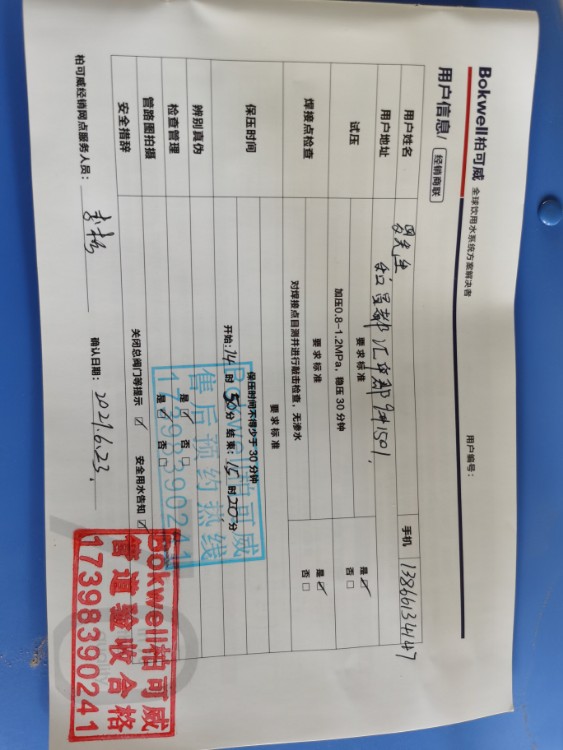 Bokwell柏可威 全球饮用水系统方案解决者
用户信息/ 经销商联
用户编号：
用户姓名
手机 13866134147
用户地址
都汇华郡9#1501,
试压
要求标准
加压0.8-1.2MPa，稳压30分钟
是☑
否□
焊接点检查
要求标准
对焊接点目测并进行敲击检查，无渗水
是☑
否□
保压时间
要求标准
保压时间不得少于30分钟
开始:14时50分 结束:15时20分
辨别真伪
是☑ 否□
检查管理
是☑ 否□
管路图拍摄
安全措辞
关闭总阀门等提示 ☑ 安全用水告知 ☑
柏可威经销网点服务人员：
确认日期：2021.6.23.
Bokwell柏可威
售后预约热线
17398390241
Bokwell柏可威
管道验收合格
17398390241